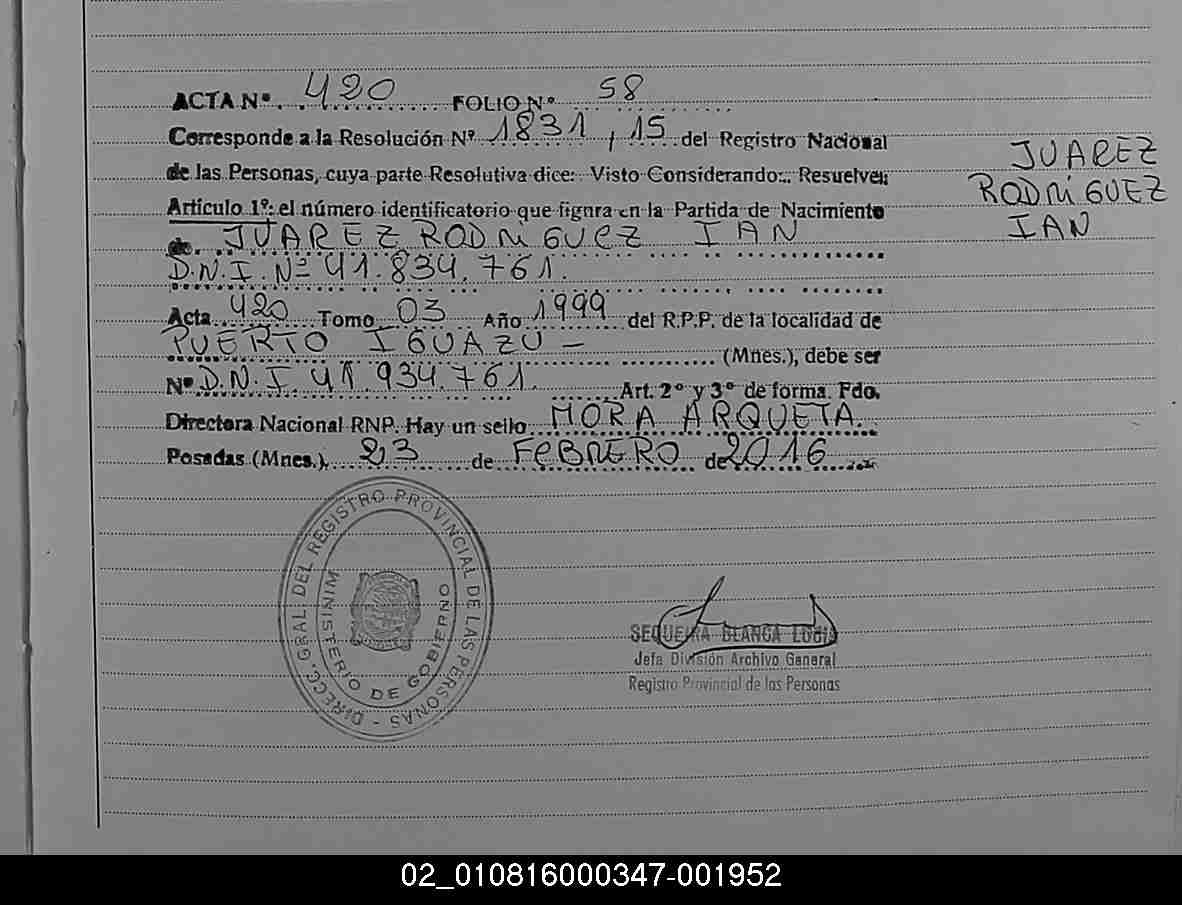 ACTA Nº. 420 FOLIO Nº 58
Corresponde a la Resolución Nº 1831, 15 del Registro Nacional
de las Personas, cuya parte Resolutiva dice: Visto Considerando:.. Resuelve:
Artículo 1º: el número identificatorio que figura en la Partida de Nacimiento
de. JUAREZ RODRIGUEZ IAN
D.N.I. Nº 41.834.761.
Acta 420 Tomo 03 Año 1999 del R.P.P. de la localidad de
PUERTO IGUAZU - (Mnes.), debe ser
Nº D.N.I. 41.934.761. Art. 2º y 3º de forma. Fdo.
Directora Nacional RNP. Hay un sello MORA ARQUETA.
Posadas (Mnes.) 23 de FEBRERO de 2016
JUAREZ
RODRIGUEZ
IAN
DIRECC. GRAL. DEL REGISTRO PROVINCIAL DE LAS PERSONAS -
MINISTERIO DE GOBIERNO
SEQUEIRA BLANCA LUCIA
Jefa División Archivo General
Registro Provincial de las Personas
02_010816000347-001952